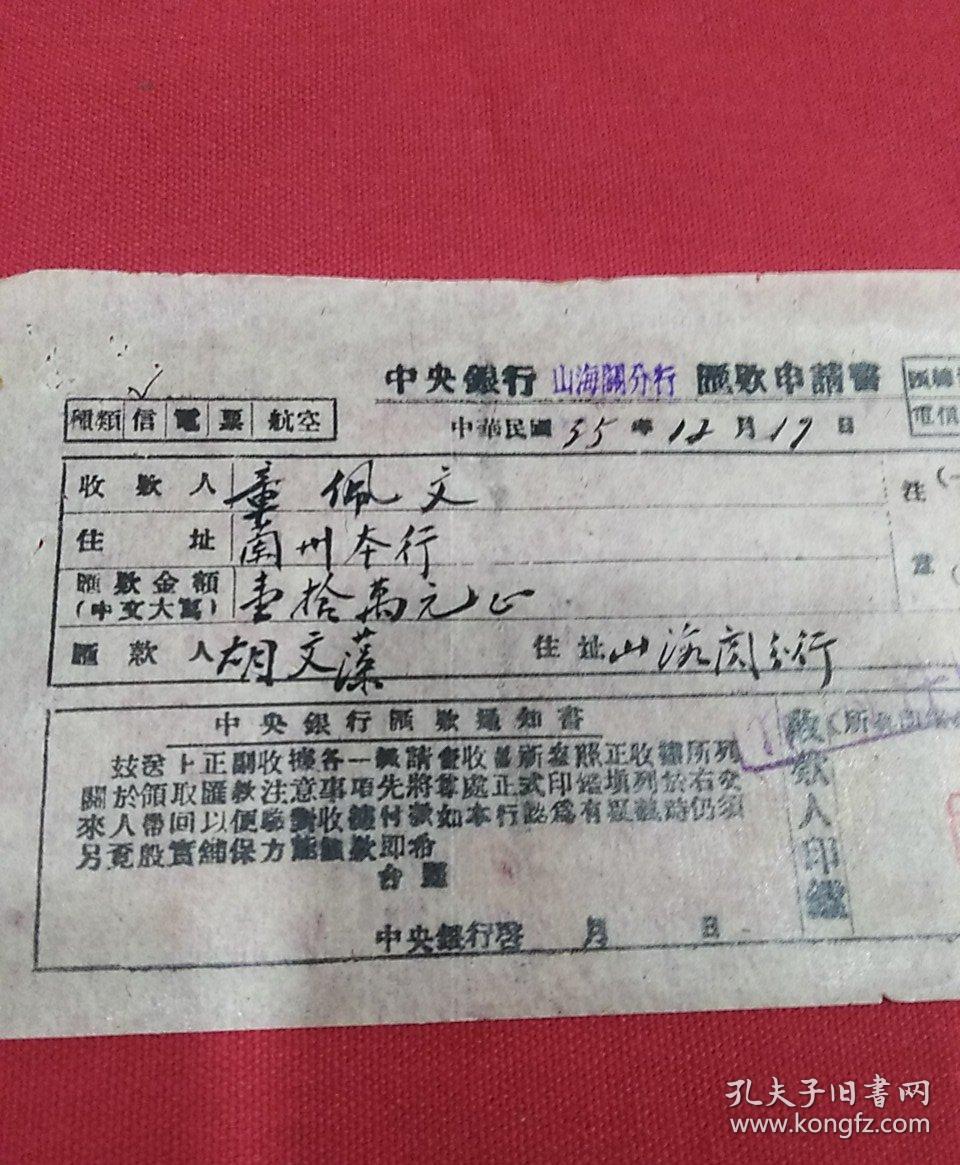 中央銀行 山海關分行 匯款申請書
種類 信 電 票 航空
中華民國 35 年 12 月 17 日
電
收款人 童佩文
注 (一
住址 蘭州本行
意 (
匯款金額 壹拾萬元正
(中文大寫)
匯款人 胡文藻 住址 山海関分行
中央銀行匯款通知書
茲送上正副收據各一紙請查收並所查照正收據所列
關於領取匯款注意事項先將尊處正式印鑑填列於右交
來人帶回以便聯對收據付款如本行認為有疑義時仍須
另覓殷實舖保方能領款即希
台照
中央銀行啓 月 日
收款人印鑑
(所
孔夫子旧書网
www.kongfz.com